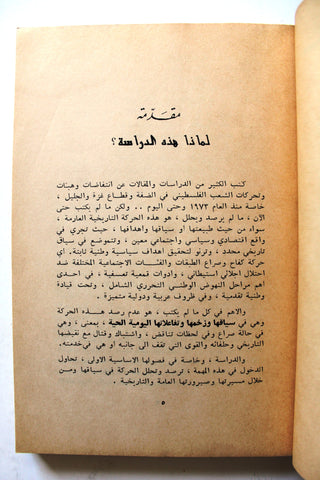 مقدّمة
لماذا هذه الدراسة ؟
كتب الكثير من الدراسات والمقالات عن انتفاضات وهبات
وتحركات الشعب الفلسطيني في الضفة وقطاع غزة والجليل ،
خاصة منذ العام ١٩٧٣ وحتى اليوم .. ولكن ما لم يكتب حتى
الآن ، ما لم يرصد ويحلل ، هو هذه الحركة التاريخية العارمة ،
سواء من حيث طبيعتها أو سياقها وأهدافها ، حيث تجري في
واقع اقتصادي وسياسي واجتماعي معين ، وتتموضع في سياق
تاريخي محدد ، وترنو لتحقيق أهداف سياسية وطنية ثابتة. إنها
حركة كفاح وصراع الطبقات والفئات الاجتماعية المختلفة ضد
احتلال اجلائي استيطاني ، وأدوات قمعية تعسفية ، في احدى
اهم مراحل النهوض الوطني التحرري الشامل ، وتحت قيادة
وطنية تقدمية ، وفي ظروف عربية ودولية متميزة .
والاهم في كل ما لم يكتب ، هو عدم رصد هذه الحركة
وهي في سياقها وزخمها وتفاعلاتها اليومية الحية ، بمعنى ، وهي
في حالة صراع وفي لحظات تناقض ، واشتباك وقتال مع نقيضها
التاريخي وحلفائه والقوى التي تقف الى جانبه او هي في خدمته.
والدراسة ، وخاصة في فصولها الاساسية الاولى ، تحاول
الدخول في هذه المهمة ، ترصد وتحلل الحركة في سياقها ومن
خلال مسيرتها وصيرورتها العامة والتاريخية .
٥